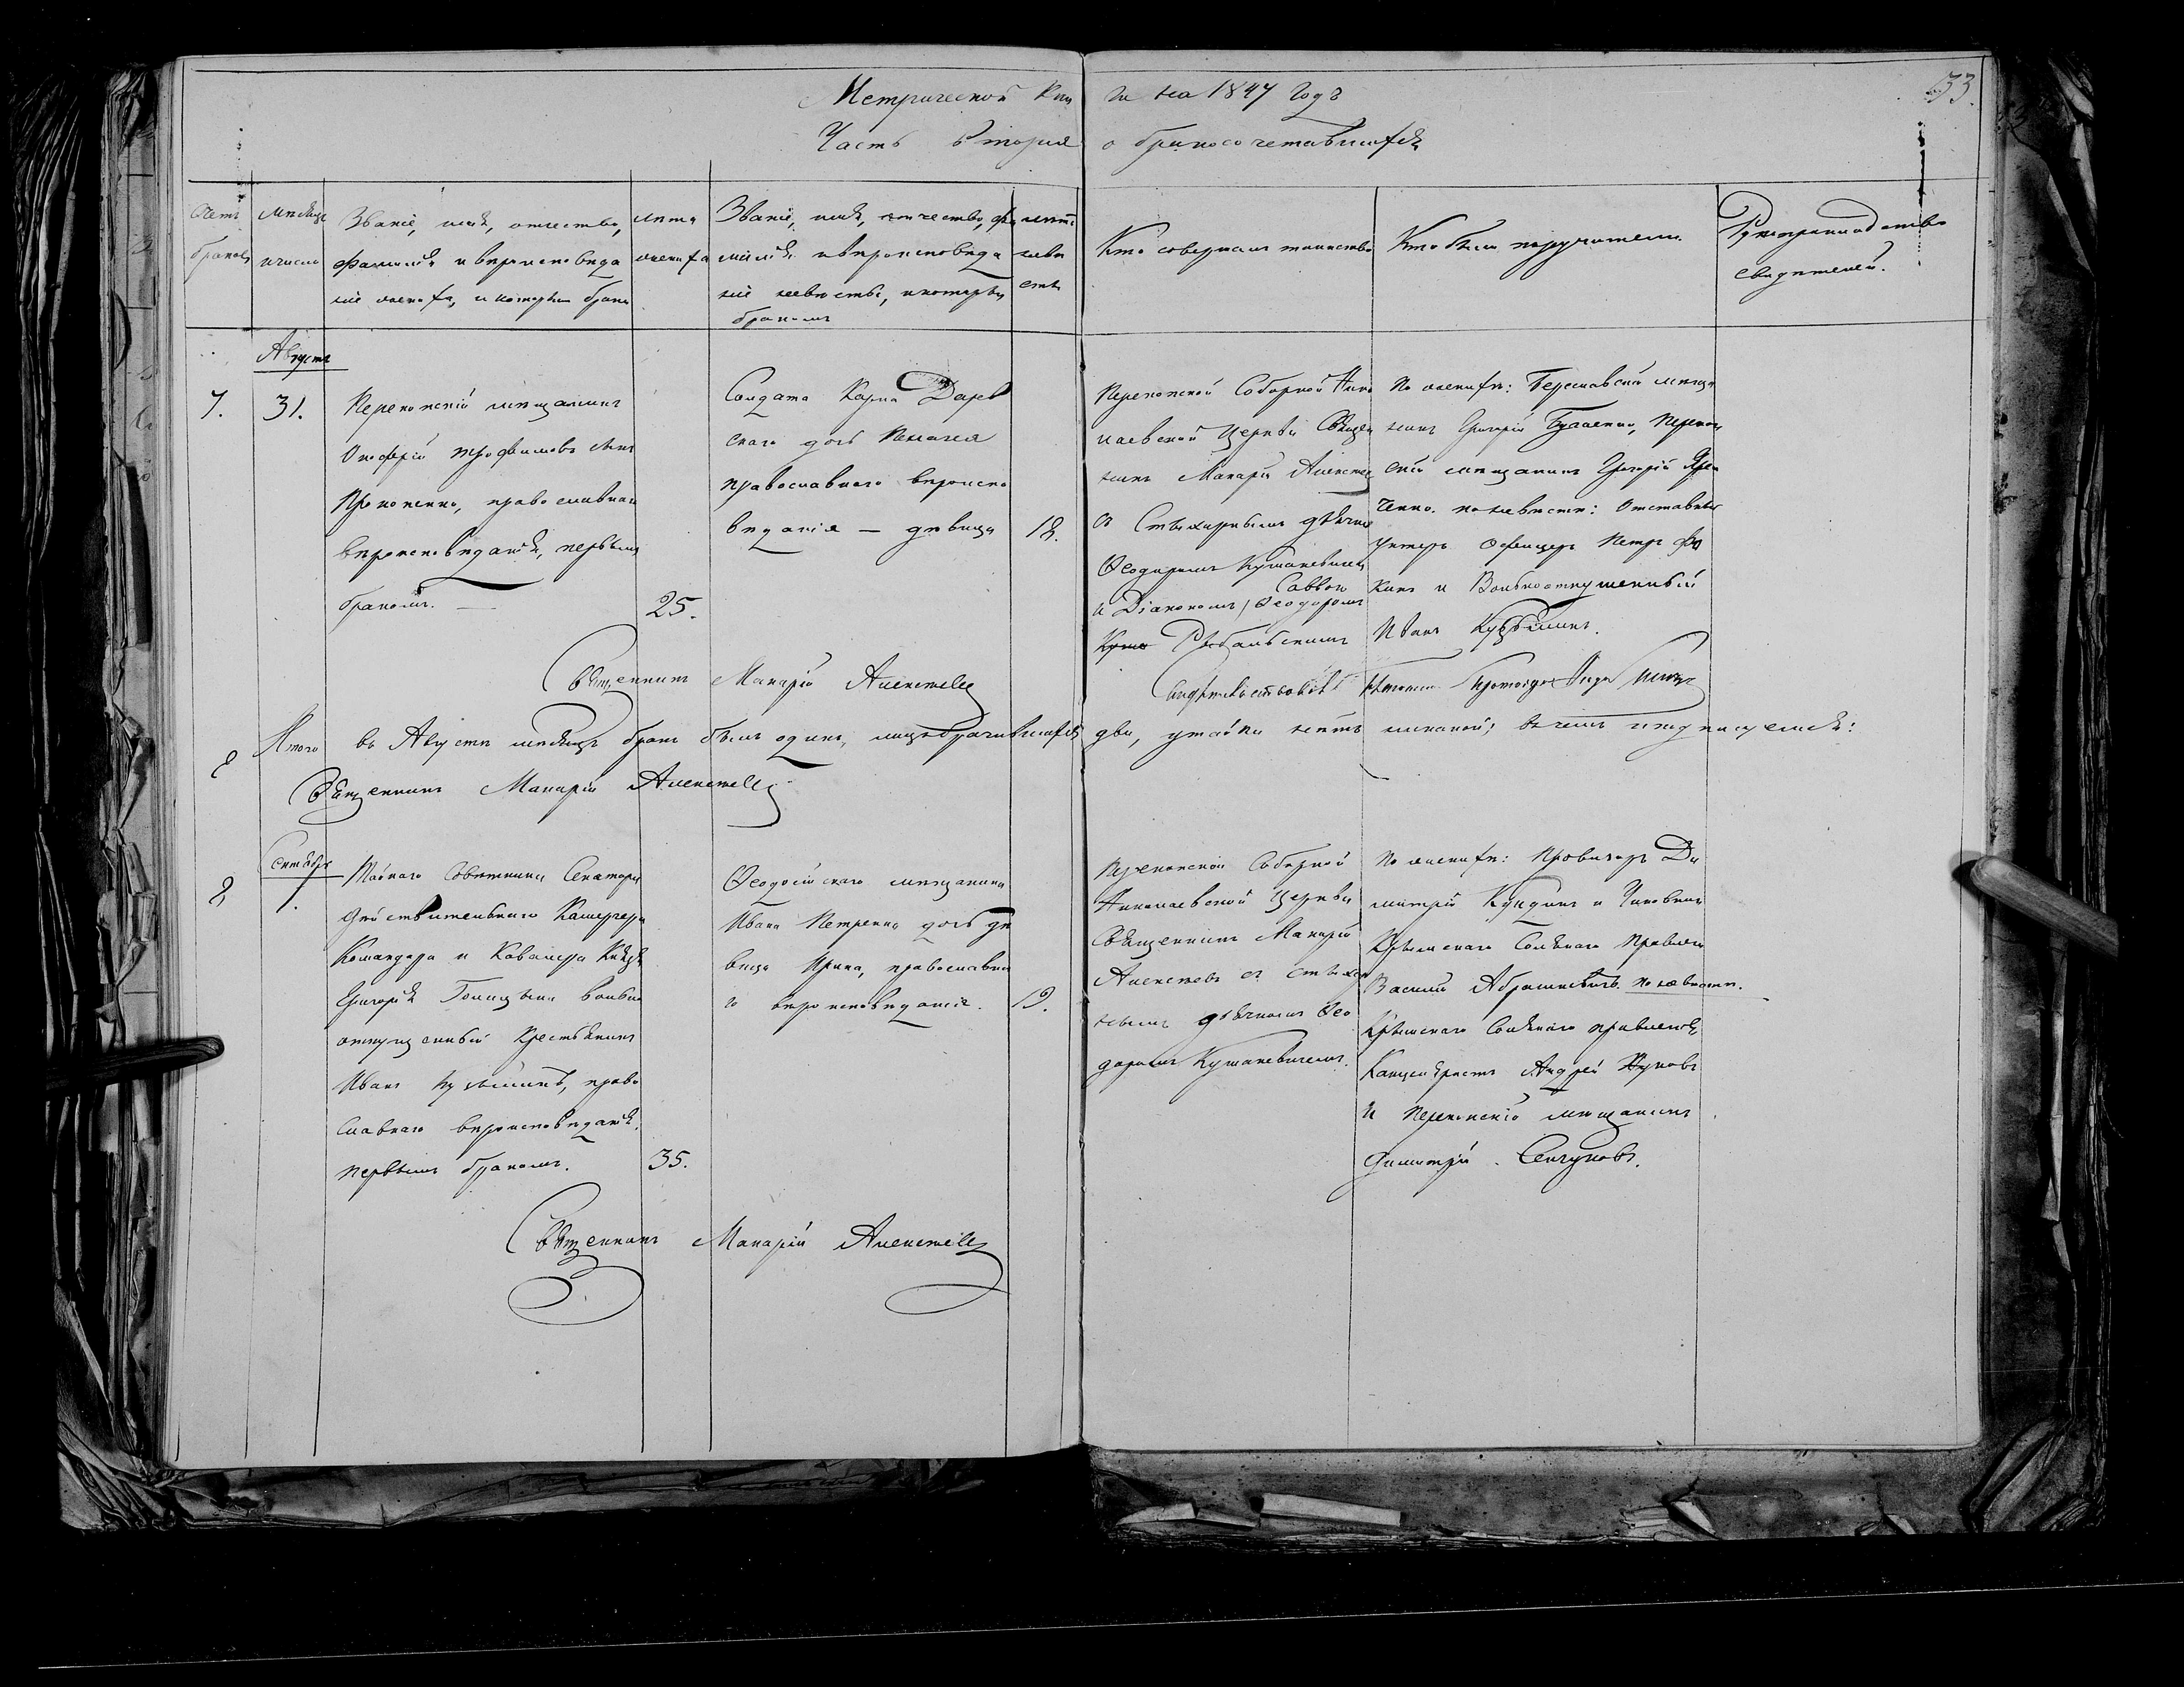 Метрической кни ги на 1847 годъ
33.
Часть вторая о бракосочетавшихся
Счетъ браковъ
Месяцъ и число
Званіе, имя, отчество,
фамилія и вероисповеда
ніе жениха, и которымъ бракомъ
лета
жениха
Званіе, имя, отчество, фа
милія и вероисповеда
ніе невесты, и которымъ
бракомъ
лета
неве
сты
Кто совершалъ таинство
Кто были поручители
Рукоприкладство
свидетелей.
Августъ
7.
31.
Перекопскій мещанинъ
Онофрій Трофимовъ сынъ
Прокопенко, православнаго
вероисповеданія, первымъ
бракомъ.
25.
Солдата Карпа Дарев
скаго дочь Пелагея
православнаго вероиспо
веданія — девица
18.
Перекопской Соборной Нико
лаевской Церкви Священ
никъ Макарій Алексеевъ
съ Стихарнымъ дьячкомъ
Феодоромъ Кушакевичемъ
Саввою
и Діакономъ Феодоромъ
Рыбальскимъ
По женихе: Бериславскій меща
нинъ Григорій, Перекоп
скій мещанинъ Григорій
ченко. по невесте: Отставный
унтеръ офицеръ Петръ Фо
кинъ и Вольноотпущенный
Иванъ Кузьминъ.
Священникъ Макарій Алексеевъ
Свидетельствовалъ
Итого въ Августе месяце бракъ былъ одинъ, лицъ бракосочетавшихся два, утайки нетъ никакой; въ чемъ и подписуемся:
Священникъ Макарій Алексеевъ
Сентябрь
8
1.
Тайнаго Советника Сенатора
Действительнаго Камергера
Командора и Кавалера Князя
Григорія Голицына вольно
отпущенный Крестьянинъ
Иванъ Кузьминъ, право
славнаго вероисповеданія.
первымъ бракомъ.
35.
Феодосійскаго мещанина
Ивана Петренка дочь де
вица Ирина, православна
го вероисповеданія.
19.
Перекопской Соборной
Николаевской Церкви
Священникъ Макарій
Алексеевъ съ стихар
нымъ дьячкомъ Фео
доромъ Кушакевичемъ.
По женихе: Провизоръ Ди
митрій Кундинъ и Чиновникъ
Крымскаго Солянаго Правленія
Василій Абрашкевичъ. по невесте.
Крымскаго Солянаго правленія
Канцеляристъ Андрей Жуковъ
и Перекопскій мещанинъ
Димитрій Сенчуковъ.
Священникъ Макарій Алексеевъ